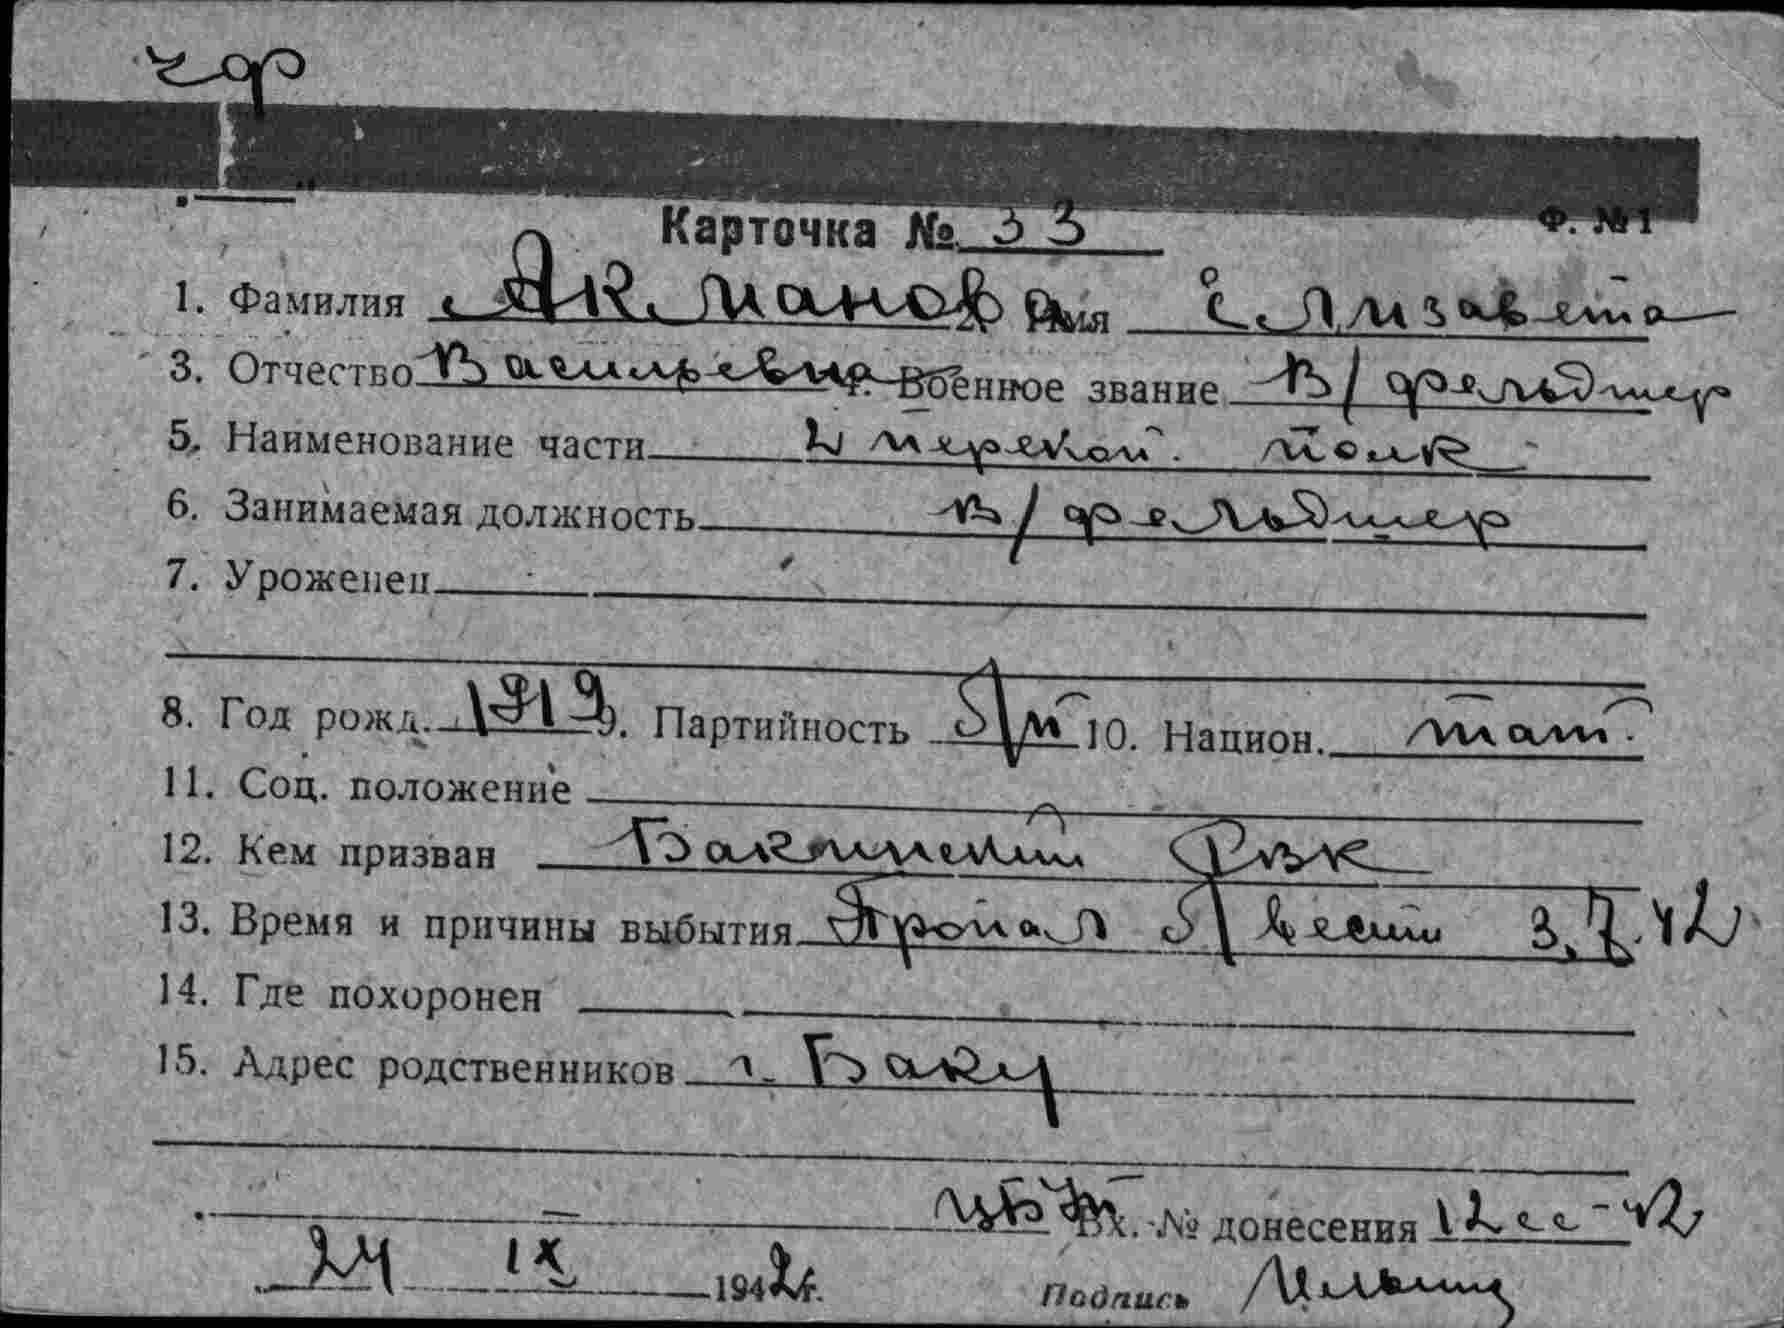 чф
Карточка № 33 Ф. №1
1. Фамилия Акманова 2. Имя Елизавета
3. Отчество Васильевна 4. Военное звание В/фельдшер
5. Наименование части 2 перекоп. полк
6. Занимаемая должность в/фельдшер
7. Уроженец
8. Год рожд. 1919 9. Партийность б/п 10. Национ. тат.
11. Соц. положение
12. Кем призван Бакинский РВК
13. Время и причины выбытия Пропал б/вести 3.7.42
14. Где похоронен
15. Адрес родственников г. Баку
Вх. № донесения 12сс-42
24 IX 1942г. Подпись